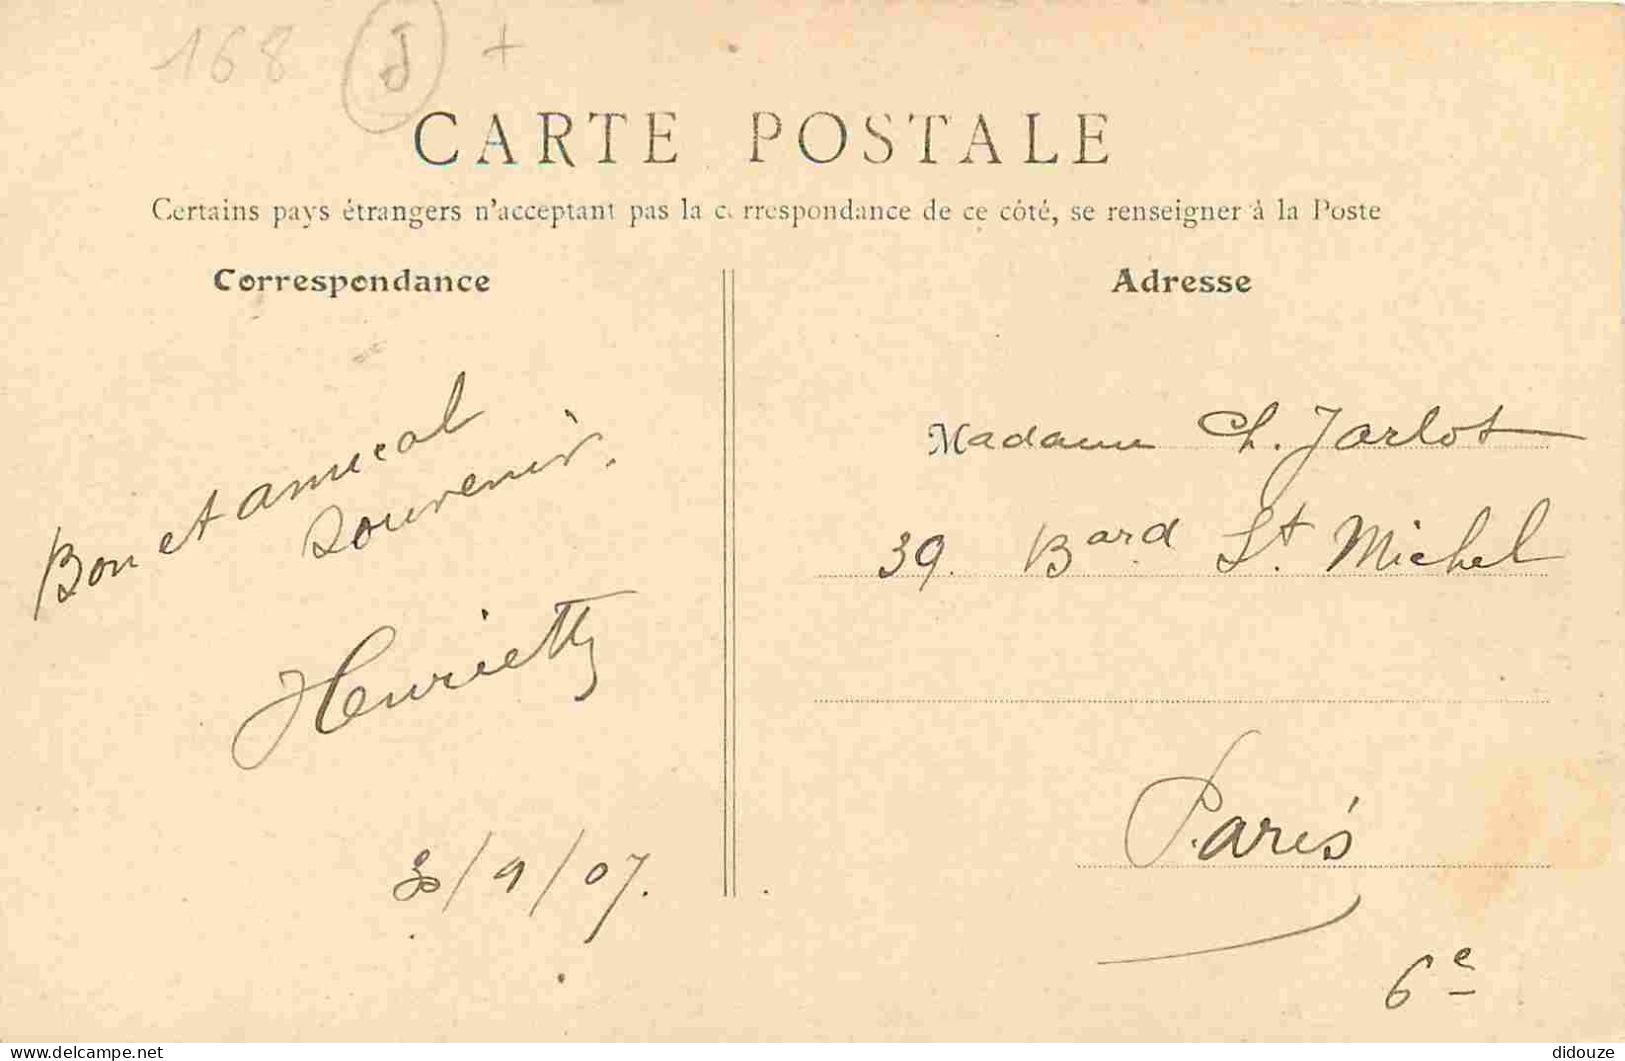 168 J +
CARTE POSTALE
Certains pays étrangers n'acceptant pas la correspondance de ce côté, se renseigner à la Poste
Correspondance
Bon et amical
souvenir.
Henriette
30/9/07.
Adresse
Madame Ch. Jarlot
39. Bard St. Michel
Paris
6e
delcampe.net
didouze